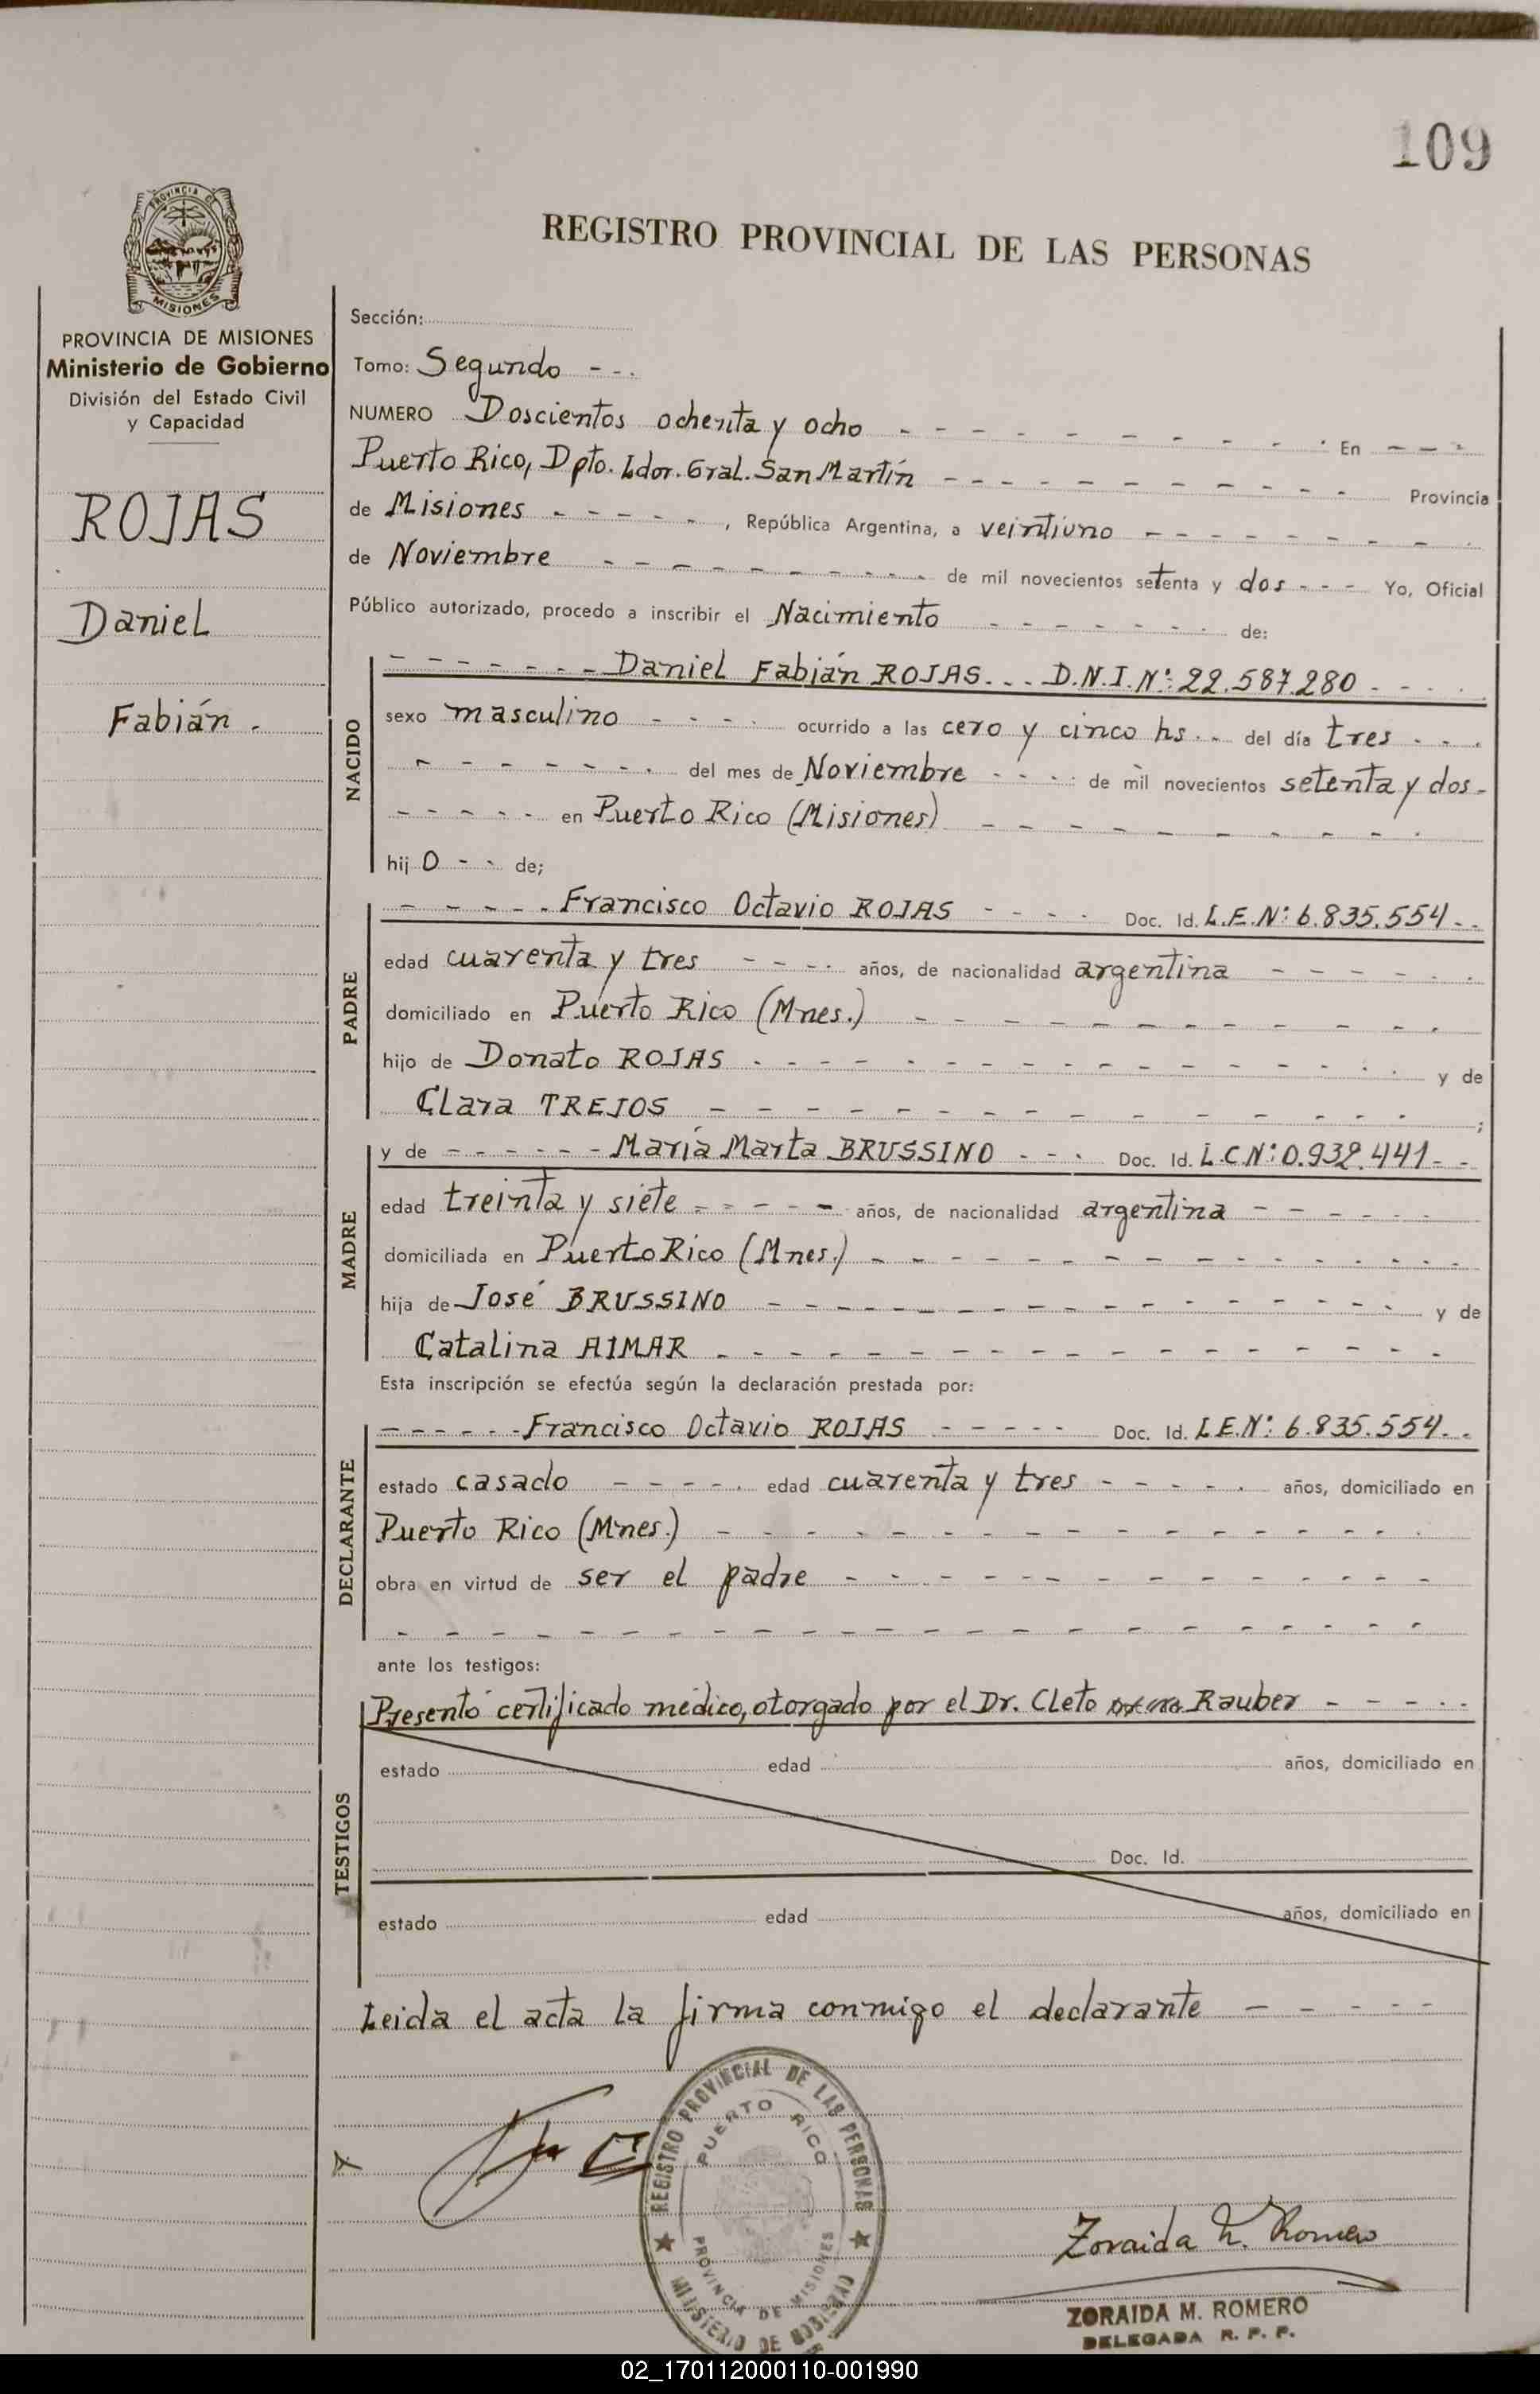 109
PROVINCIA DE
MISIONES
REGISTRO PROVINCIAL DE LAS PERSONAS
PROVINCIA DE MISIONES
Ministerio de Gobierno
División del Estado Civil
y Capacidad
ROJAS
Daniel
Fabián.
Sección:
Tomo: Segundo - - .
NUMERO Doscientos ochenta y ocho - - - - - - - - - - En - - -
Puerto Rico, Dpto. Ldor. Gral. San Martín - - - - - - - - - - Provincia
de Misiones - - - - - , República Argentina, a veintiuno - - - - - - - -
de Noviembre - - - - - - - - - - de mil novecientos setenta y dos - - - Yo, Oficial
Público autorizado, procedo a inscribir el Nacimiento - - - - - - - de:
NACIDO
- - - - - - - Daniel Fabián ROJAS. - - D.N.I.Nº: 22.587.280 - - - .
sexo masculino - - - - ocurrido a las cero y cinco hs. - - del día tres - - .
- - - - - - - . del mes de Noviembre - - - - de mil novecientos setenta y dos -
- - - - - - en Puerto Rico (Misiones) - - - - - - - - - -
hij o - - de;
PADRE
- - - - - Francisco Octavio ROJAS - - - - Doc. Id. L.E.Nº: 6.835.554 - -
edad cuarenta y tres - - - - años, de nacionalidad argentina - - - - - -
domiciliado en Puerto Rico (Mnes.) - - - - - - - - - - - -
hijo de Donato ROJAS - - - - - - - - - - - - - - y de
Clara TREJOS - - - - - - - - - - - - - - - - ;
MADRE
y de - - - - - - María Marta BRUSSINO - - - Doc. Id. L.C.Nº: 0.932.441 - -
edad treinta y siete - - - - - años, de nacionalidad argentina - - - - - -
domiciliada en Puerto Rico (Mnes.) - - - - - - - - - - - - -
hija de - José BRUSSINO - - - - - - - - - - - - - - - y de
Catalina AIMAR - - - - - - - - - - - - - - - - - -
Esta inscripción se efectúa según la declaración prestada por:
DECLARANTE
- - - - - - Francisco Octavio ROJAS - - - - - Doc. Id. L.E.Nº: 6.835.554 - -
estado casado - - - - - edad cuarenta y tres - - - - - años, domiciliado en
Puerto Rico (Mnes.) - - - - - - - - - - - - - - - -
obra en virtud de ser el padre - - - - - - - - - - - - -
- - - - - - - - - - - - - - - - - - - - - - -
ante los testigos:
TESTIGOS
Presentó certificado médico, otorgado por el Dr. Cleto Rauber - - - - -
estado edad años, domiciliado en
Doc. Id.
estado edad años, domiciliado en
Leida el acta la firma conmigo el declarante - - - - -
REGISTRO PROVINCIAL DE LAS PERSONAS
PUERTO RICO
PROVINCIA DE MISIONES
MINISTERIO DE GOBIERNO
Zoraida M. Romero
ZORAIDA M. ROMERO
DELEGADA R. P. P.
02_170112000110-001990